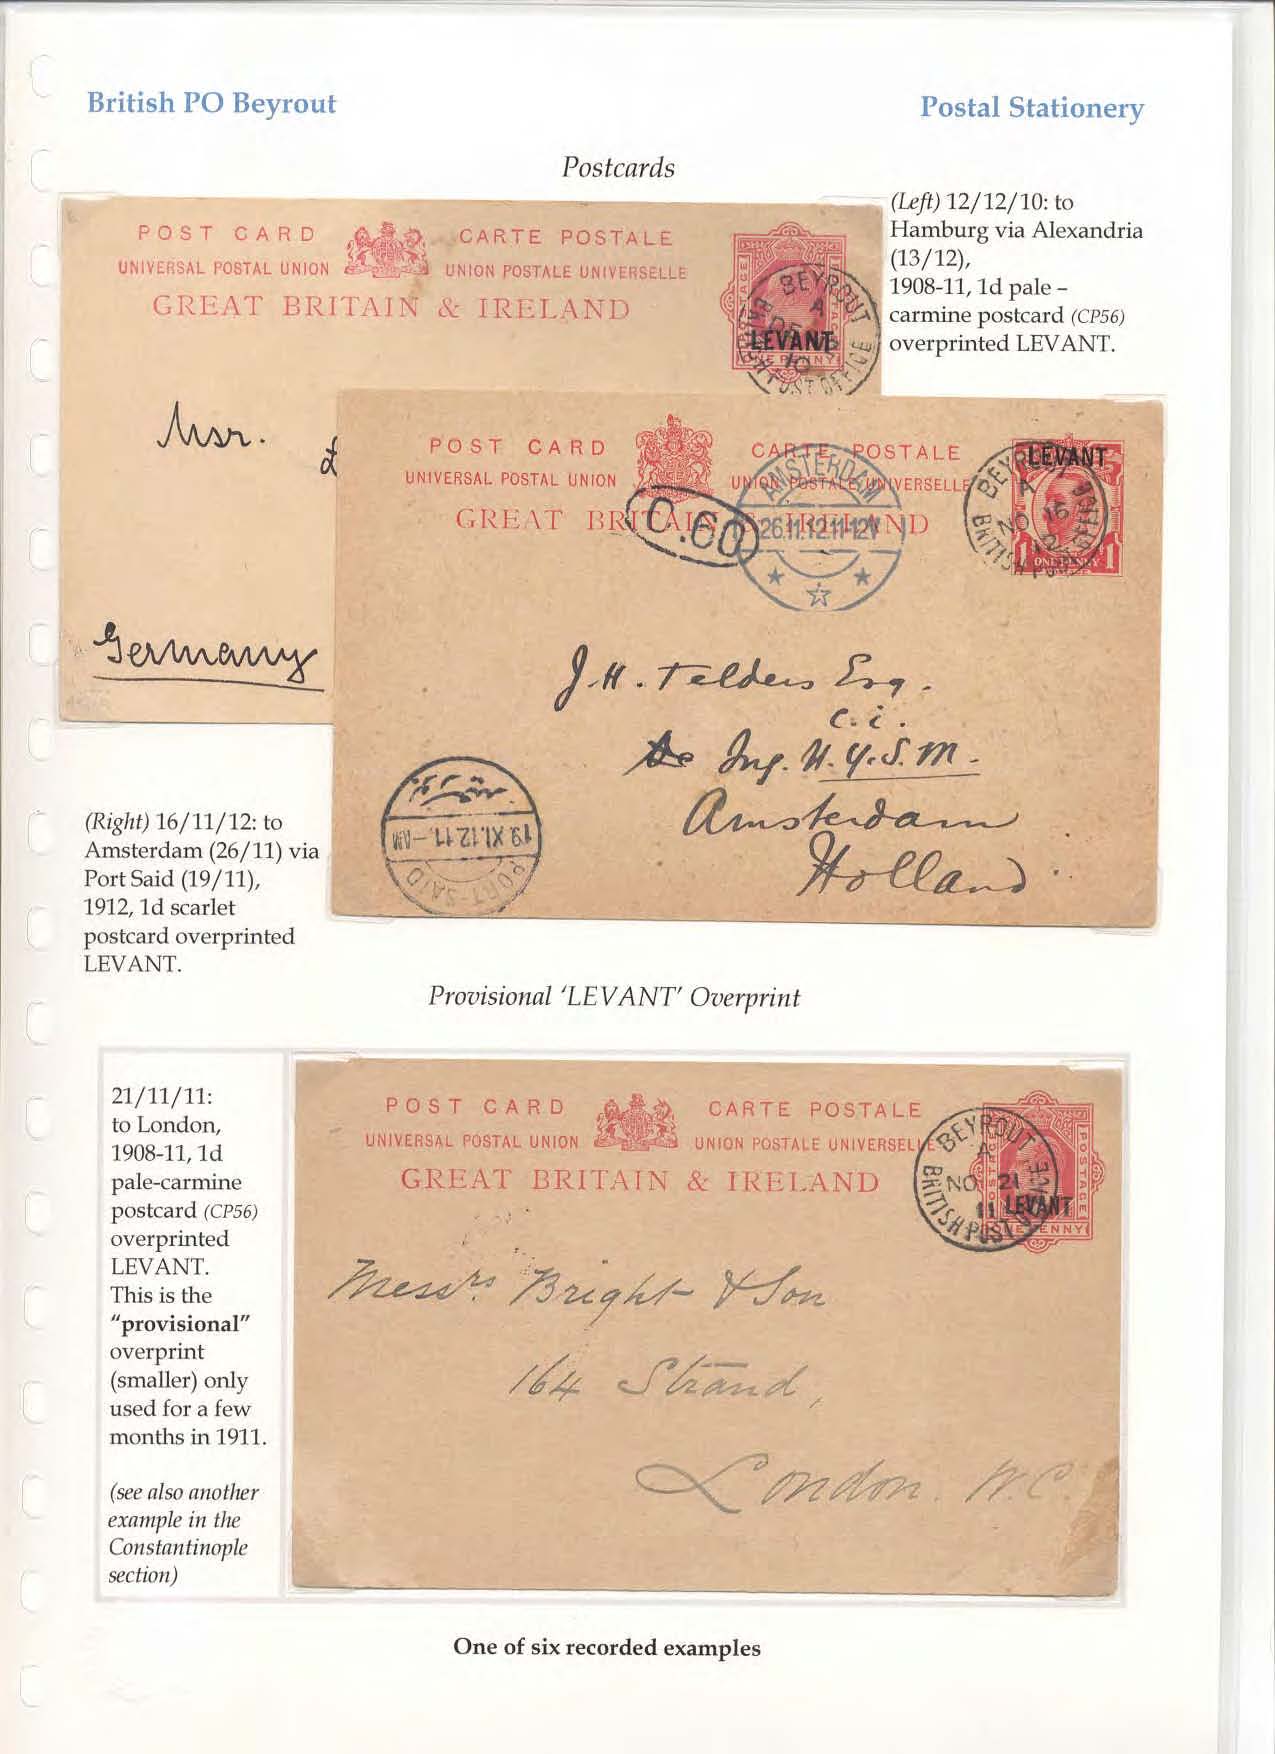 British PO Beyrout
Postal Stationery
Postcards
(Left) 12/12/10: to
Hamburg via Alexandria
(13/12),
1908-11, 1d pale –
carmine postcard (CP56)
overprinted LEVANT.
POST CARD CARTE POSTALE
UNIVERSAL POSTAL UNION UNION POSTALE UNIVERSELLE
GREAT BRITAIN & IRELAND
POSTAGE
ONE PENNY
LEVANT
BEYROUT
A
DE
10
BRITISH POST OFFICE
Msr.
Germany
POST CARD CARTE POSTALE
UNIVERSAL POSTAL UNION UNION POSTALE UNIVERSELLE
GREAT BRITAIN & IRELAND
LEVANT
1 ONE PENNY 1
BEYROUT
A
NO 16
12
BRITISH POST OFFICE
AMSTERDAM
26.11.12.11-12V
C.60
J.H. Telders Esq.
c.i.
Ing. N.Y.S.M.
Amsterdam
Holland
19.XI.12.11.-AM
PORT-SAID
(Right) 16/11/12: to
Amsterdam (26/11) via
Port Said (19/11),
1912, 1d scarlet
postcard overprinted
LEVANT.
Provisional ‘LEVANT’ Overprint
21/11/11:
to London,
1908-11, 1d
pale-carmine
postcard (CP56)
overprinted
LEVANT.
This is the
“provisional”
overprint
(smaller) only
used for a few
months in 1911.
(see also another
example in the
Constantinople
section)
POST CARD CARTE POSTALE
UNIVERSAL POSTAL UNION UNION POSTALE UNIVERSELLE
GREAT BRITAIN & IRELAND
POSTAGE
ONE PENNY
LEVANT
BEYROUT
A
NO 21
11
BRITISH POST OFFICE
Messrs. Bright & Son
164 Strand,
London. W.C.
One of six recorded examples